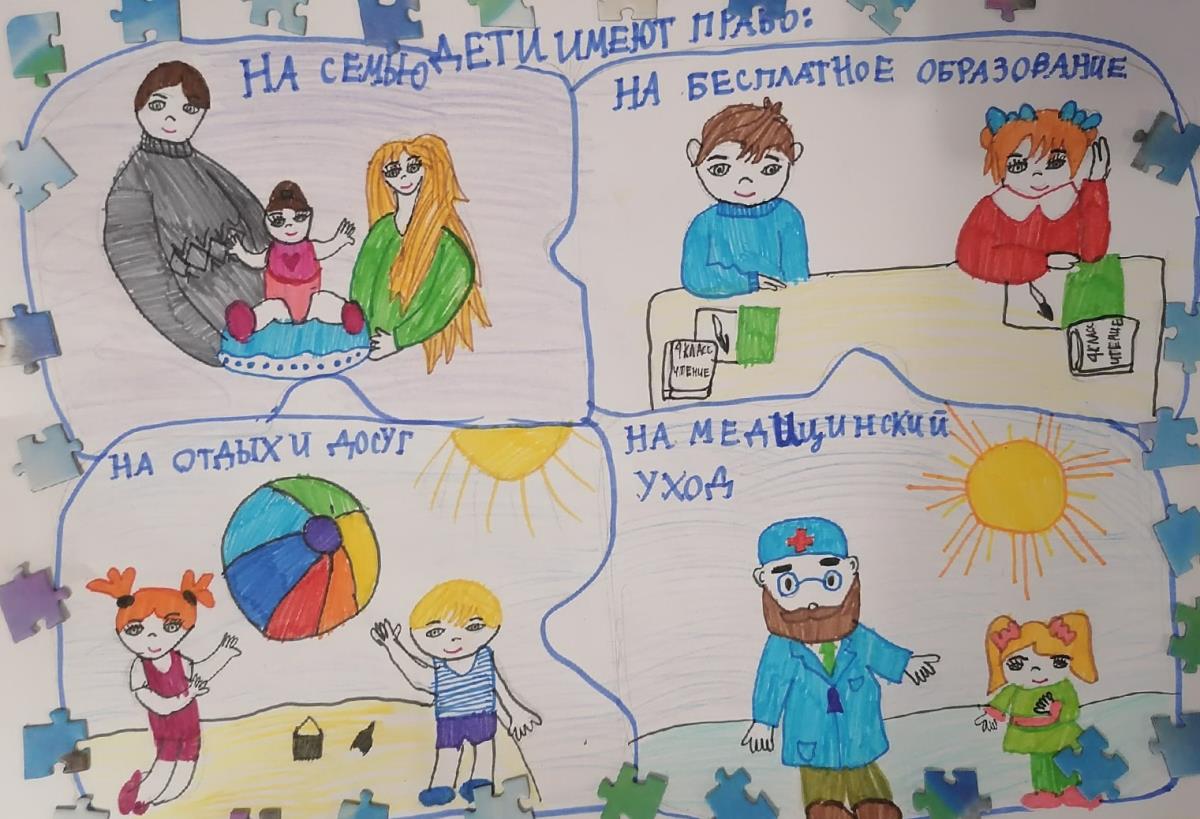 ДЕТИ ИМЕЮТ ПРАВО:
НА СЕМЬЮ
НА БЕСПЛАТНОЕ ОБРАЗОВАНИЕ
4 КЛАСС
ЧТЕНИЕ
4 КЛАСС
ЧТЕНИЕ
НА ОТДЫХ И ДОСУГ
НА МЕДИЦИНСКИЙ
УХОД